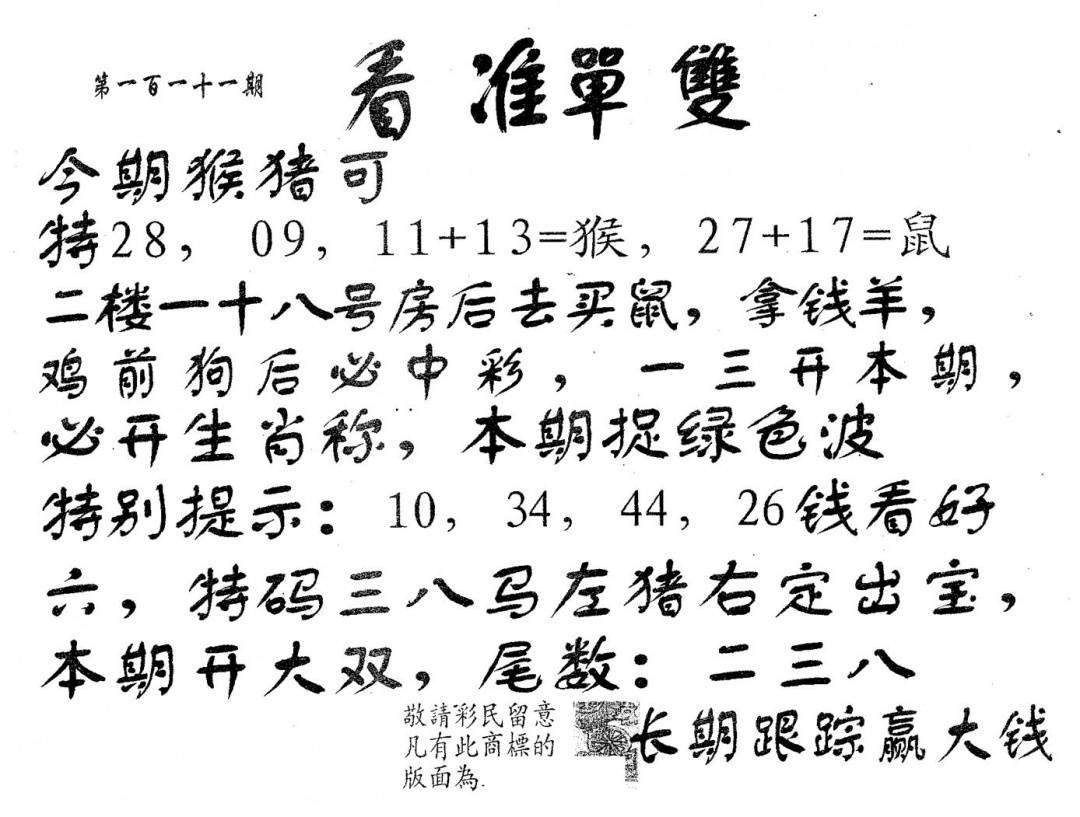 第一百一十一期
看准單雙
今期猴猪可
特28， 09， 11+13=猴， 27+17=鼠
二楼一十八号房后去买鼠，拿钱羊，
鸡前狗后必中彩，一三开本期，
必开生肖称，本期捉绿色波
特别提示：10， 34， 44， 26钱看好
六，特码三八马左猪右定出宝，
本期开大双，尾数：二三八
敬請彩民留意
凡有此商標的
版面為.
长期跟踪赢大钱